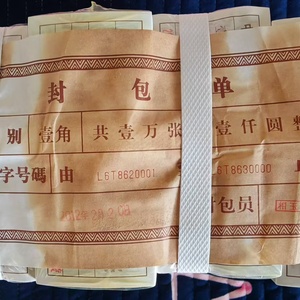 封 包 单
别 壹角 共壹万张 壹仟圆整
字号码 由 L6T8620001 L6T8630000
封包员